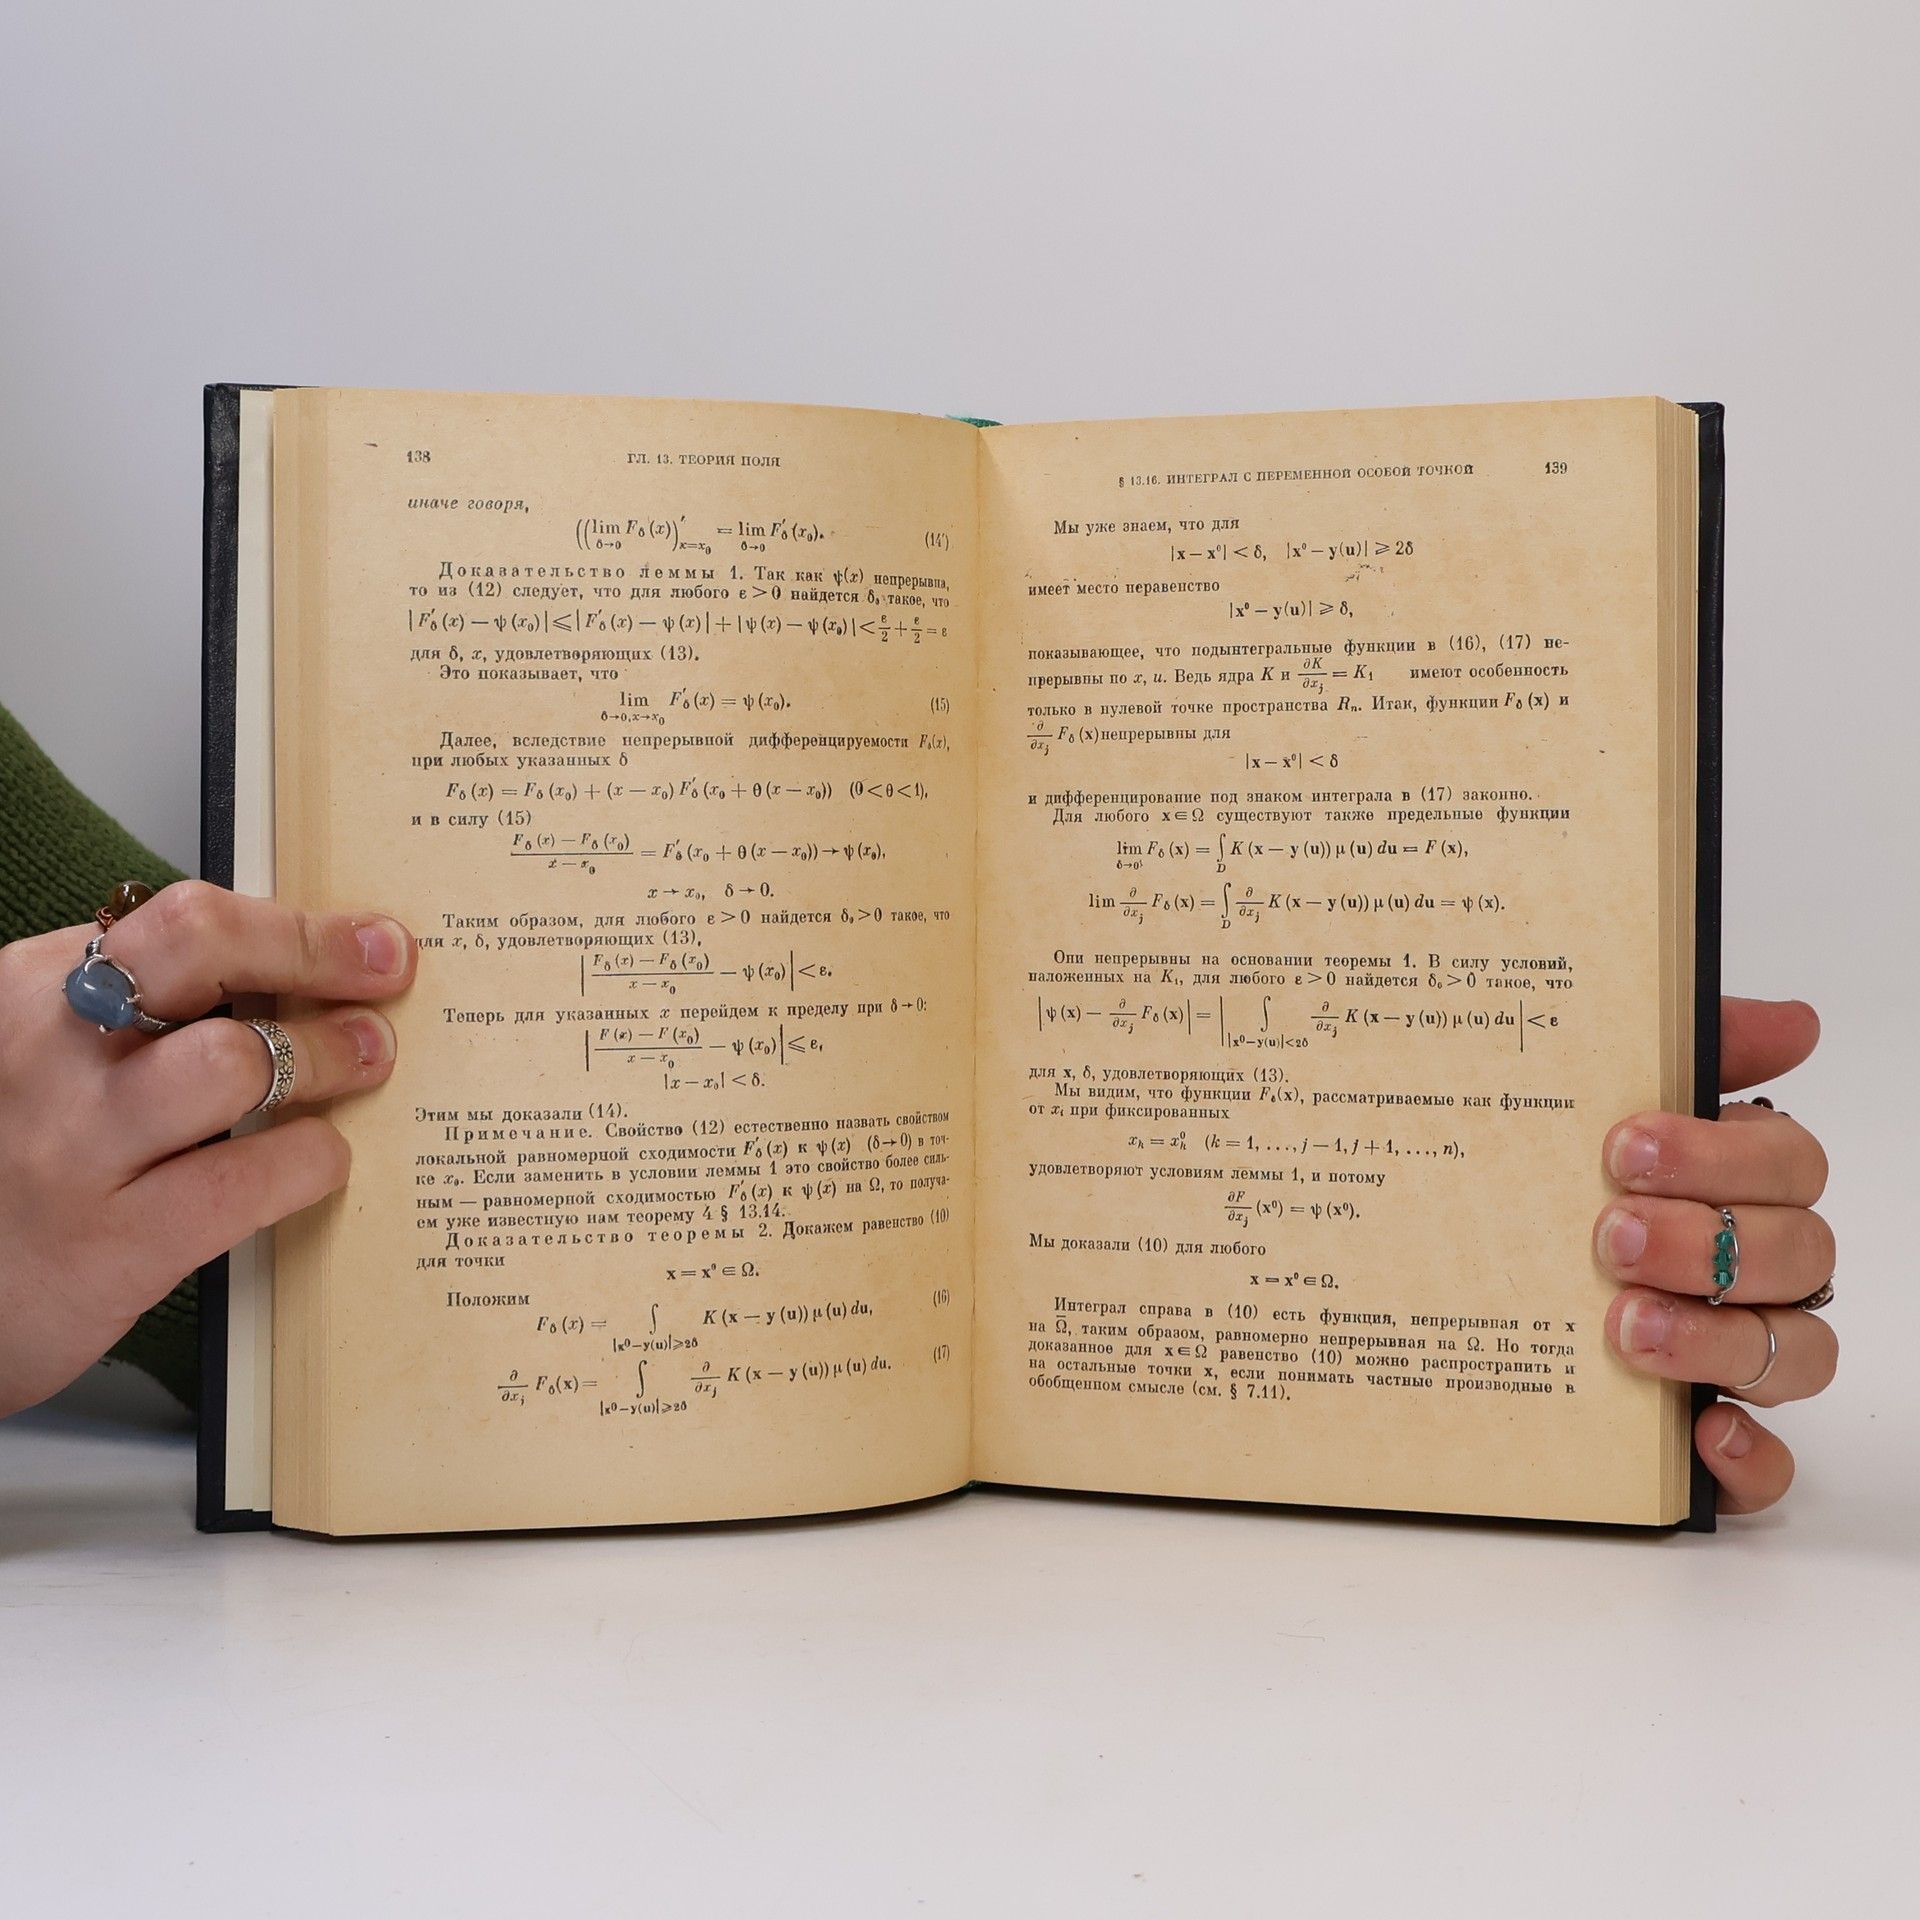 138
ГЛ. 13. ТЕОРИЯ ПОЛЯ
иначе говоря,
((lim_{δ→0} F_δ (x))'_{x=x_0} = lim_{δ→0} F'_δ (x_0). (14')
Доказательство леммы 1. Так как ψ(x) непрерывна,
то из (12) следует, что для любого ε > 0 найдется δ_0 такое, что
| F'_δ (x) — ψ (x_0) | ⩽ | F'_δ (x) — ψ (x) | + | ψ (x) — ψ (x_0) | < ε/2 + ε/2 = ε
для δ, x, удовлетворяющих (13).
Это показывает, что
lim_{δ→0, x→x_0} F'_δ (x) = ψ (x_0). (15)
Далее, вследствие непрерывной дифференцируемости F_δ(x),
при любых указанных δ
F_δ (x) = F_δ (x_0) + (x — x_0) F'_δ (x_0 + θ (x — x_0)) (0 < θ < 1),
и в силу (15)
(F_δ (x) — F_δ (x_0))/(x — x_0) = F'_δ (x_0 + θ (x — x_0)) → ψ (x_0),
x → x_0, δ → 0.
Таким образом, для любого ε > 0 найдется δ_0 > 0 такое, что
для x, δ, удовлетворяющих (13),
| (F_δ (x) — F_δ (x_0))/(x — x_0) — ψ (x_0) | < ε.
Теперь для указанных x перейдем к пределу при δ → 0:
| (F (x) — F (x_0))/(x — x_0) — ψ (x_0) | ⩽ ε,
|x — x_0| < δ.
Этим мы доказали (14).
Примечание. Свойство (12) естественно назвать свойством
локальной равномерной сходимости F'_δ (x) к ψ (x) (δ → 0) в точ-
ке x_0. Если заменить в условии леммы 1 это свойство более силь-
ным — равномерной сходимостью F'_δ (x) к ψ (x) на Ω, то получа-
ем уже известную нам теорему 4 § 13.14.
Доказательство теоремы 2. Докажем равенство (10)
для точки
x = x^0 ∈ Ω.
Положим
F_δ (x) = ∫_{|x^0—y(u)|⩾2δ} K (x — y (u)) μ (u) du, (16)
∂/∂x_j F_δ(x) = ∫_{|x^0—y(u)|⩾2δ} ∂/∂x_j K (x — y (u)) μ (u) du. (17)
§ 13.16. ИНТЕГРАЛ С ПЕРЕМЕННОЙ ОСОБОЙ ТОЧКОЙ
139
Мы уже знаем, что для
|x — x^0| < δ, |x^0 — y(u)| ⩾ 2δ
имеет место неравенство
|x^0 — y(u)| ⩾ δ,
показывающее, что подынтегральные функции в (16), (17) не-
прерывны по x, u. Ведь ядра K и ∂K/∂x_j = K_1 имеют особенность
только в нулевой точке пространства R_n. Итак, функции F_δ (x) и
∂/∂x_j F_δ (x) непрерывны для
|x — x^0| < δ
и дифференцирование под знаком интеграла в (17) законно.
Для любого x ∈ Ω существуют также предельные функции
lim_{δ→0} F_δ (x) = ∫_D K (x — y (u)) μ (u) du = F (x),
lim ∂/∂x_j F_δ (x) = ∫_D ∂/∂x_j K (x — y (u)) μ (u) du = ψ (x).
Они непрерывны на основании теоремы 1. В силу условий,
наложенных на K_1, для любого ε > 0 найдется δ_0 > 0 такое, что
| ψ (x) — ∂/∂x_j F_δ (x) | = | ∫_{|x^0—y(u)|<2δ} ∂/∂x_j K (x — y (u)) μ (u) du | < ε
для x, δ, удовлетворяющих (13).
Мы видим, что функции F_δ(x), рассматриваемые как функции
от x_i при фиксированных
x_k = x_k^0 (k = 1, ..., j — 1, j + 1, ..., n),
удовлетворяют условиям леммы 1, и потому
∂F/∂x_j (x^0) = ψ (x^0).
Мы доказали (10) для любого
x = x^0 ∈ Ω.
Интеграл справа в (10) есть функция, непрерывная от x
на Ω̅, таким образом, равномерно непрерывная на Ω. Но тогда
доказанное для x ∈ Ω равенство (10) можно распространить и
на остальные точки x, если понимать частные производные в
обобщенном смысле (см. § 7.11).